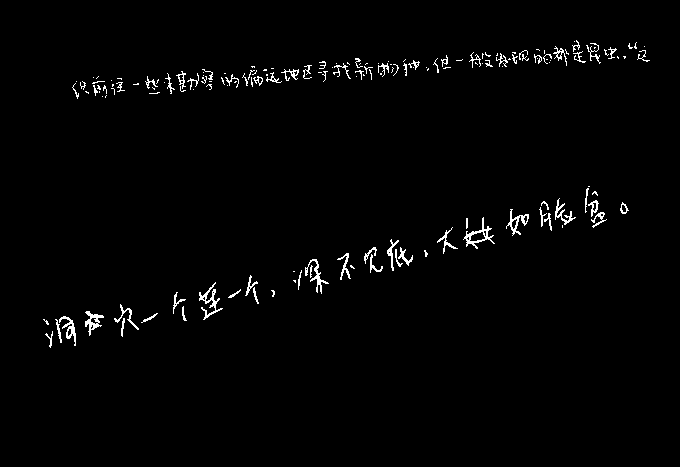 织前往一些未勘察的偏远地区寻找新物种，但一般发现的都是昆虫，“这
洞穴一个连一个，深不见底，大如脸盆。